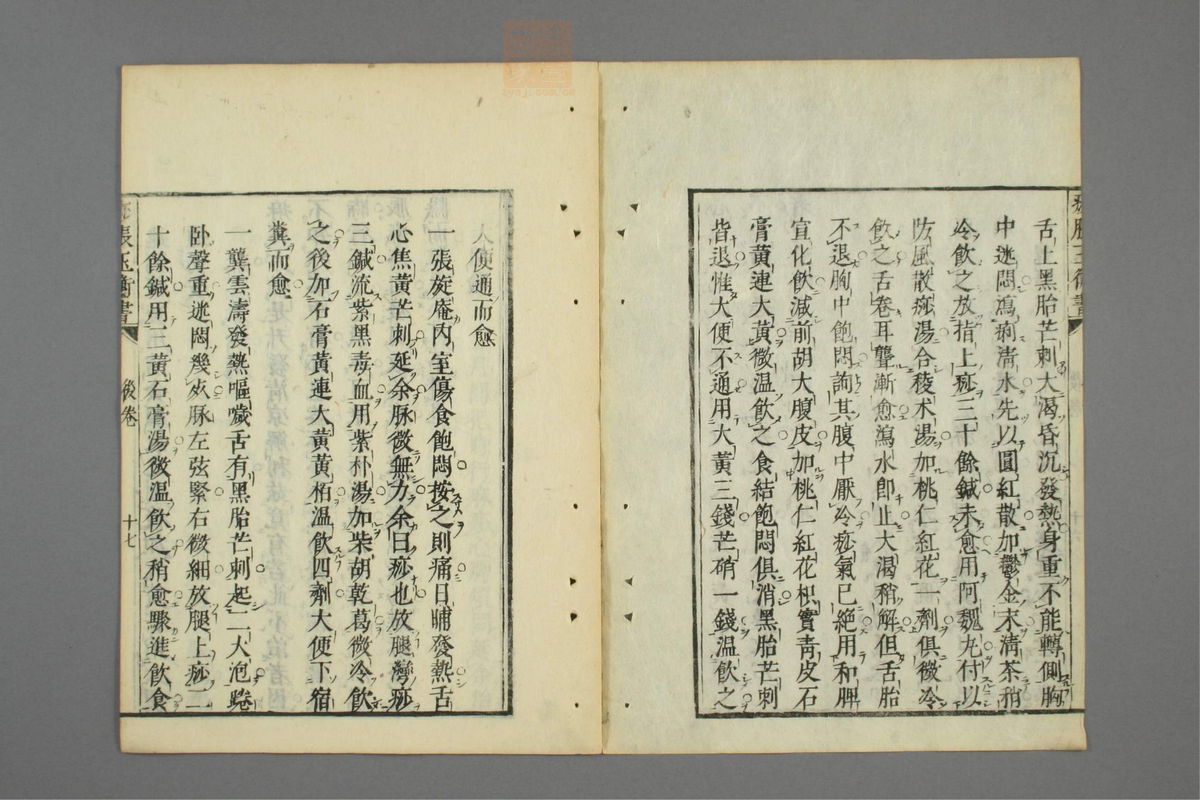 舌上黑胎芒刺大渴昏沉發熱身重不能轉側胸
中迷悶瀉痢清水先以圓紅散加鬱金末清茶稍
冷飲之放指上痧三十餘鍼未愈用阿魏丸付以
防風散痧湯合稜朮湯加桃仁紅花一劑俱微冷
飲之舌卷耳聾漸愈瀉水即止大渴稍解但舌胎
不退胸中飽悶詢其腹中厭冷痧氣已絶用和脾
宣化飲減前胡大腹皮加桃仁紅花枳實青皮石
膏黃連大黃微温飲之食結飽悶俱消黑胎芒刺
皆退惟大便不通用大黃三錢芒硝一錢温飲之
大便通而愈
一張旋庵内室傷食飽悶按之則痛日晡發熱舌
心焦黃芒刺延余脉微無力余曰痧也放腿灣痧
三鍼流紫黑毒血用紫朴湯加柴胡乾葛微冷飲
之後加石膏黃連大黃黃栢温飲四劑大便下宿
糞而愈
一龔雲濤發熱嘔噦舌有黑胎芒刺起一大泡踡
卧聲重迷悶幾㱿脉左弦緊右微細放腿上痧二
十餘鍼用三黃石膏湯微温飲之稍愈驟進飲食
痧脹玉衡書
後卷
十七